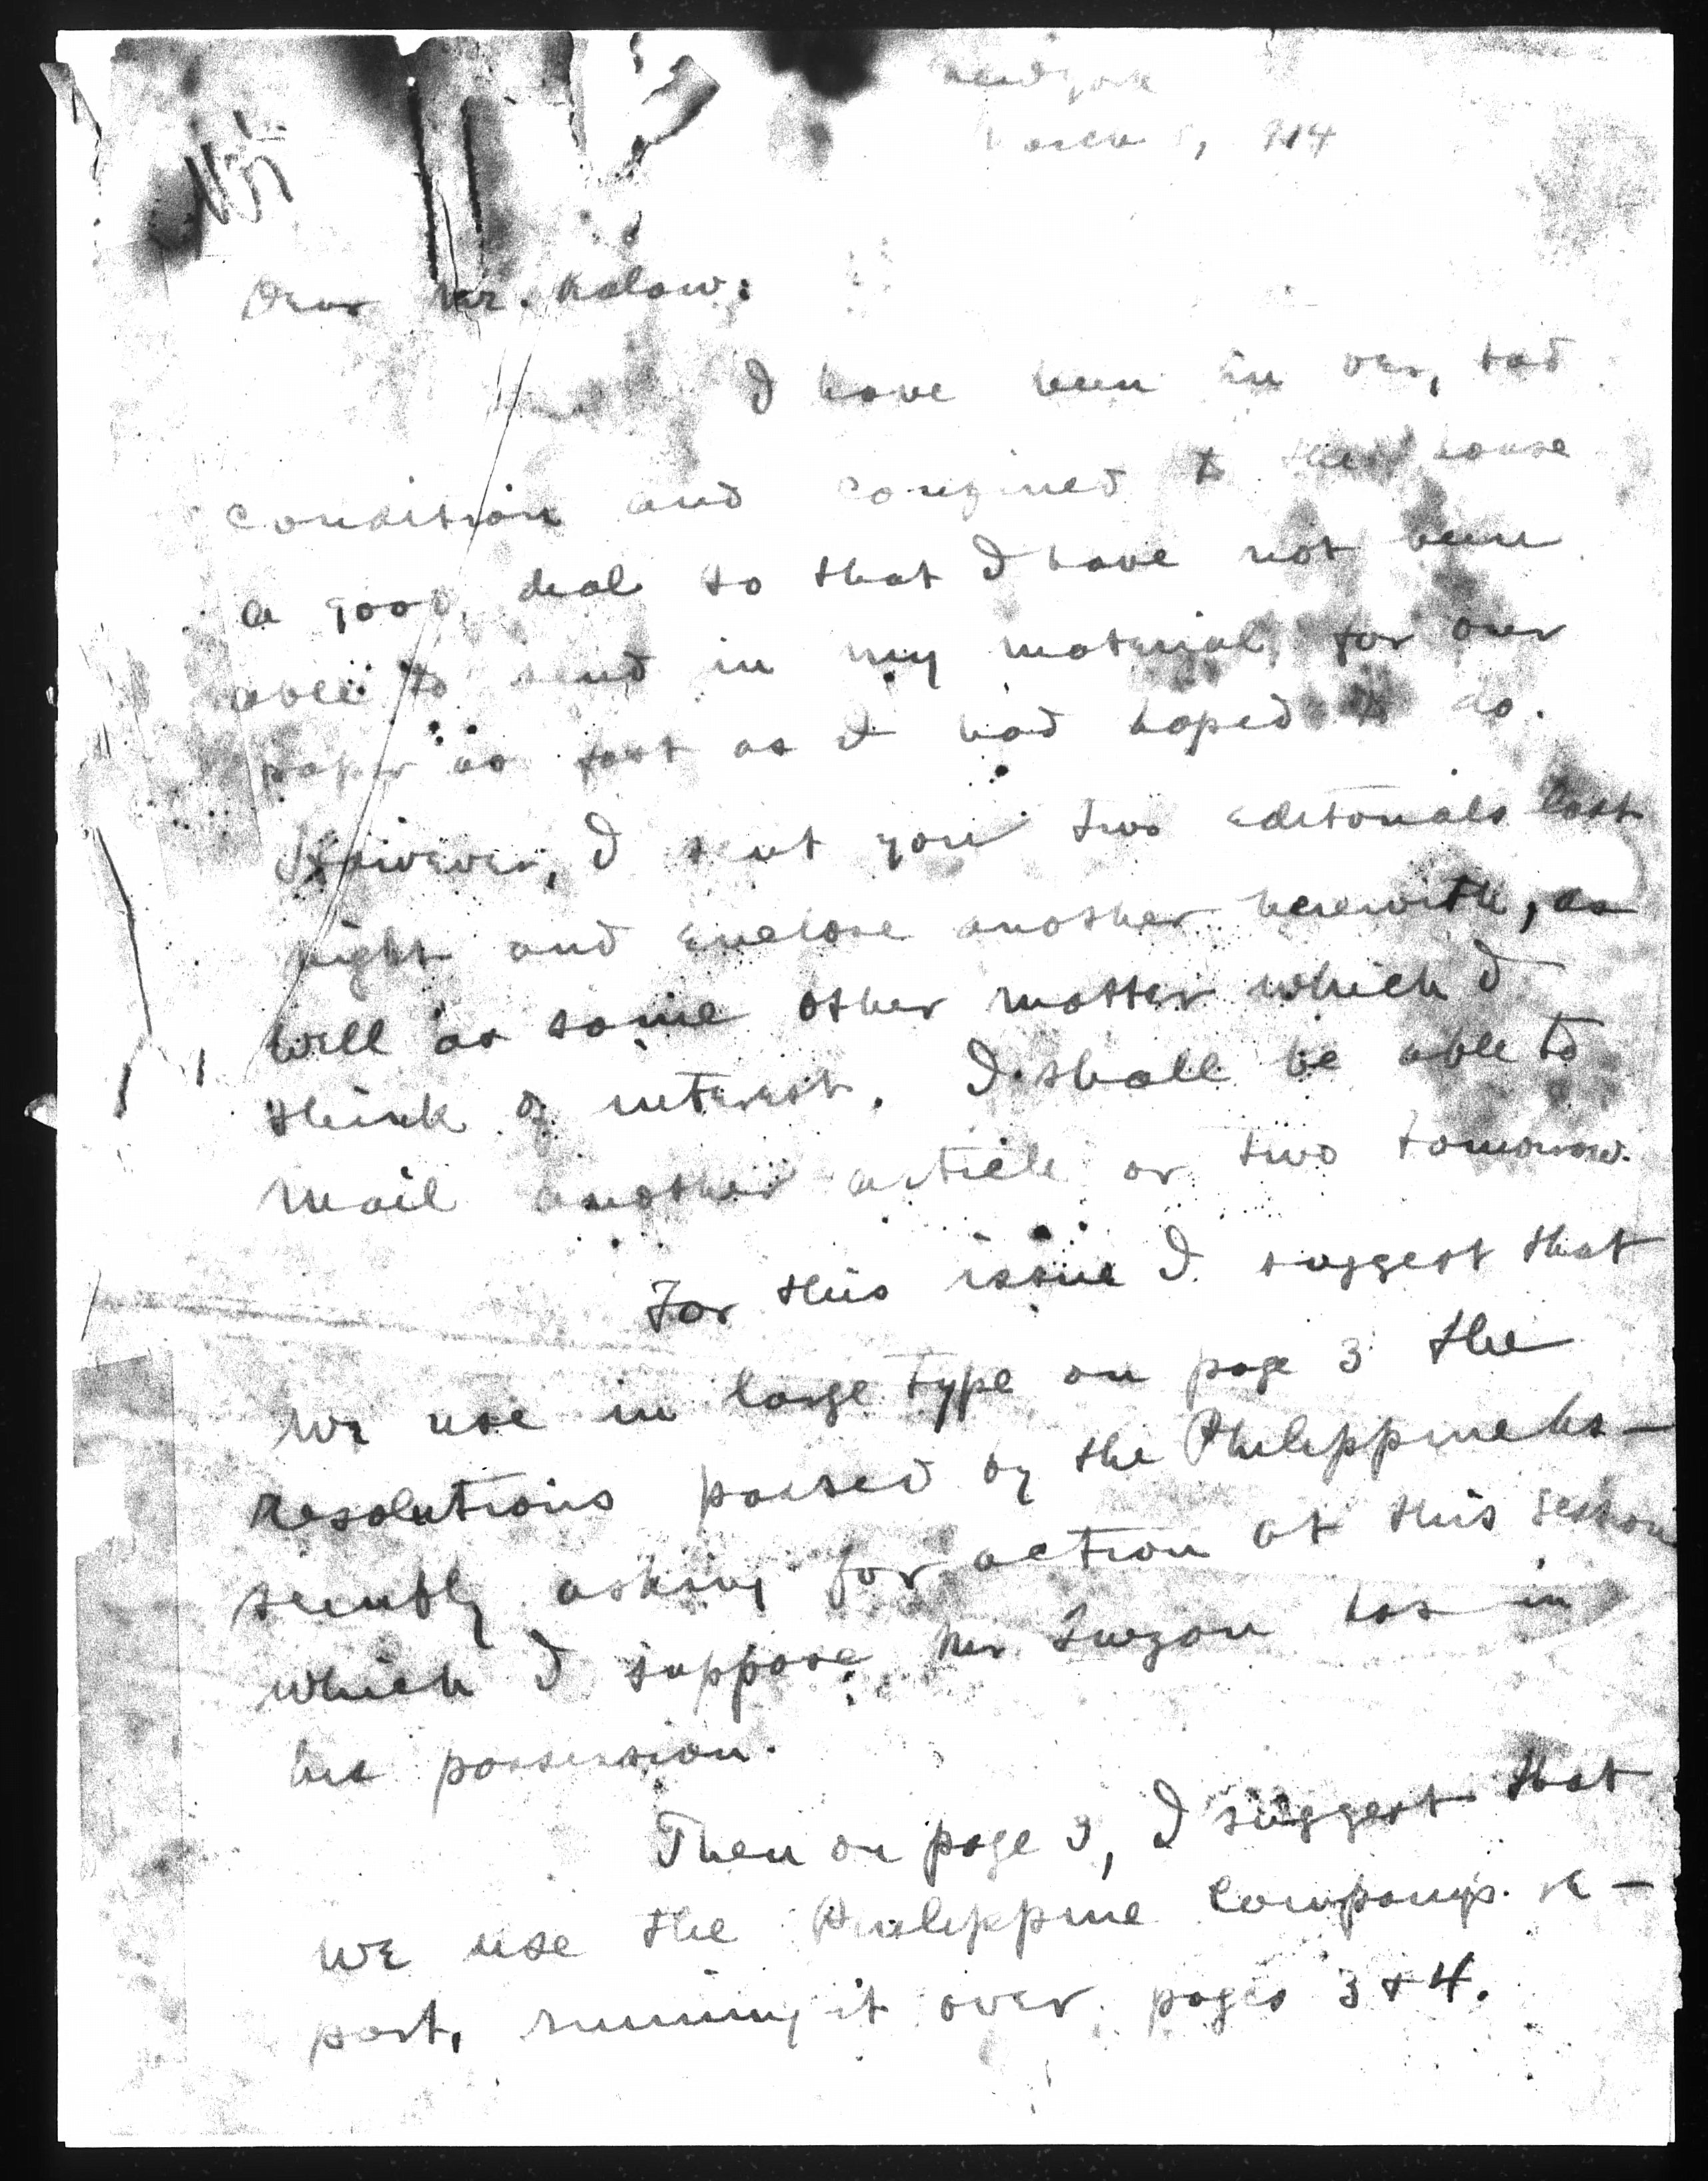 New York
March , 1914
Dear Mr. Kalaw:
I have been in very bad
condition and confined to the house
a good deal so that I have not been
able to send in my material for our
paper as fast as I had hoped to do.
However, I sent you two editorials last
night and enclose another herewith, as
well as some other matter which I
think of interest. I shall be able to
mail another article or two tomorrow.
For this issue I suggest that
we use in large type on page 3 the
resolutions passed by the Philippine As-
sembly asking for action at this session
which I suppose Mr. Quezon has in
his possession.
Then on page 3, I suggest that
we use the Philippine Company's re-
port, running it over pages 3 & 4.